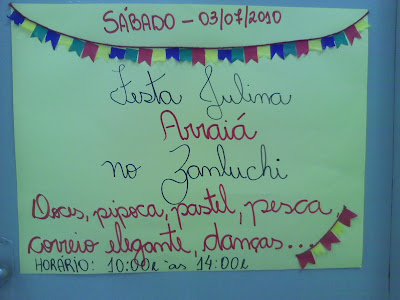 SÁBADO - 03/07/2010
Festa Julina
Arraiá
no Zanluchi
Doces, pipoca, pastel, pesca,
correio elegante, danças...
HORÁRIO: 10:00h às 14:00h